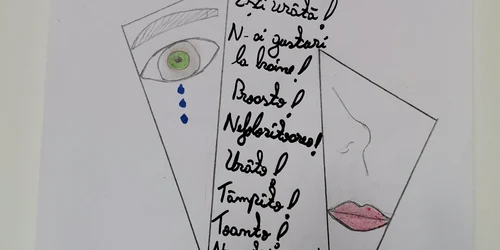 Ești urâtă!
N-ai gusturi
la haine!
Proasto!
Nefolositoareo!
Urâto!
Tâmpito!
Toanto!